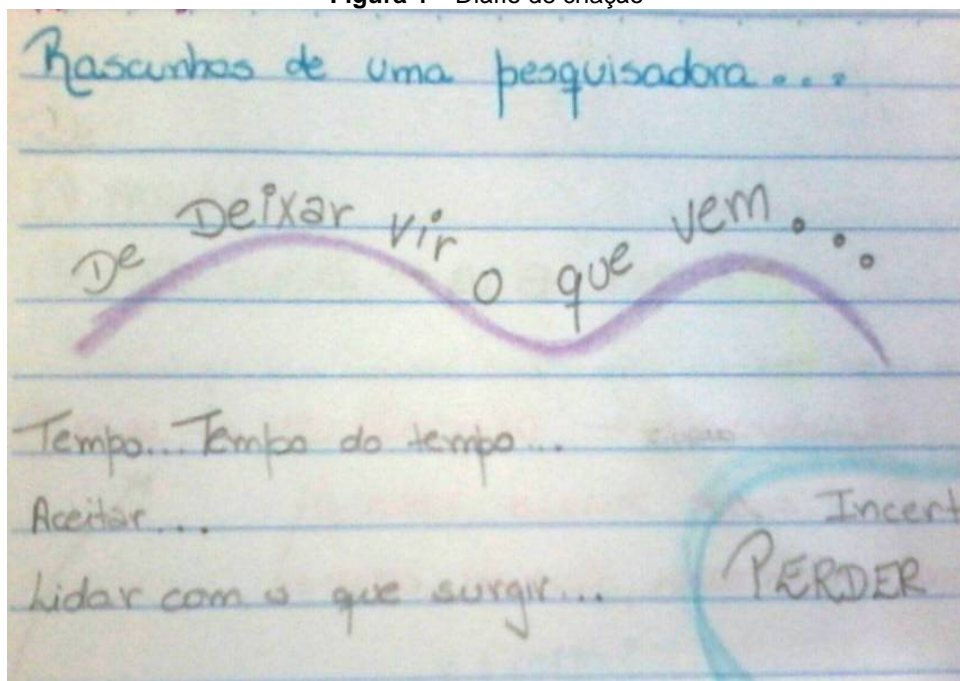 Figura 1 – Diário de criação
Rascunhos de uma pesquisadora...
De Deixar vir o que vem...
Tempo... Tempo do tempo...
Aceitar...
Incert
Lidar com o que surgir...
PERDER